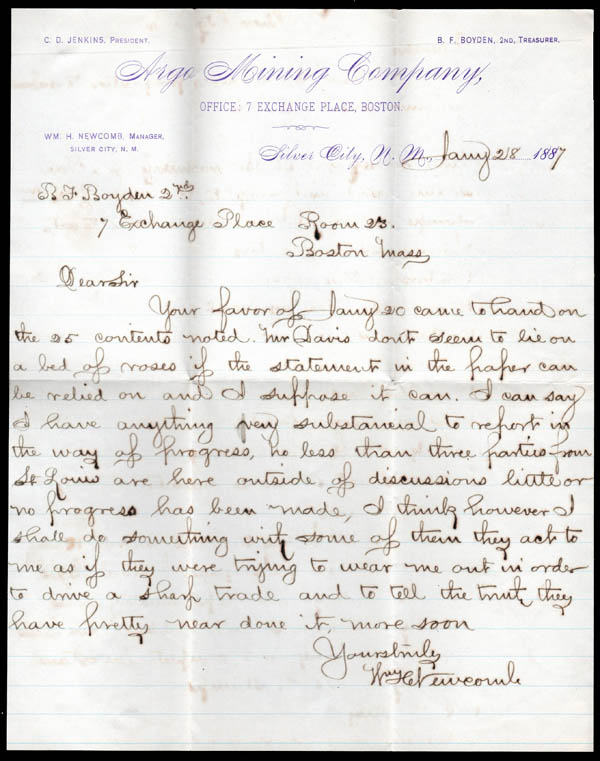 C. D. JENKINS, PRESIDENT.
B. F. BOYDEN, 2ND, TREASURER.
Argo Mining Company,
OFFICE: 7 EXCHANGE PLACE, BOSTON.
WM. H. NEWCOMB, MANAGER,
SILVER CITY, N. M.
Silver City, N. M. Jany 28 1887
B. F. Boyden 2nd
7 Exchange Place Room 23.
Boston Mass
Dear Sir
Your favor of Jany 20 came to hand on
the 25 contents noted. Mr Davis dont seem to lie on
a bed of roses if the statement in the paper can
be relied on and I suppose it can. I can say
I have anything very substancial to report in
the way of progress, no less than three parties from
St Louis are here outside of discussions little or
no progress has been made, I think however I
shall do something with some of them they act to
me as if they were trying to wear me out in order
to drive a sharp trade and to tell the truth they
have pretty near done it, more soon
Yours truly
Wm H Newcomb